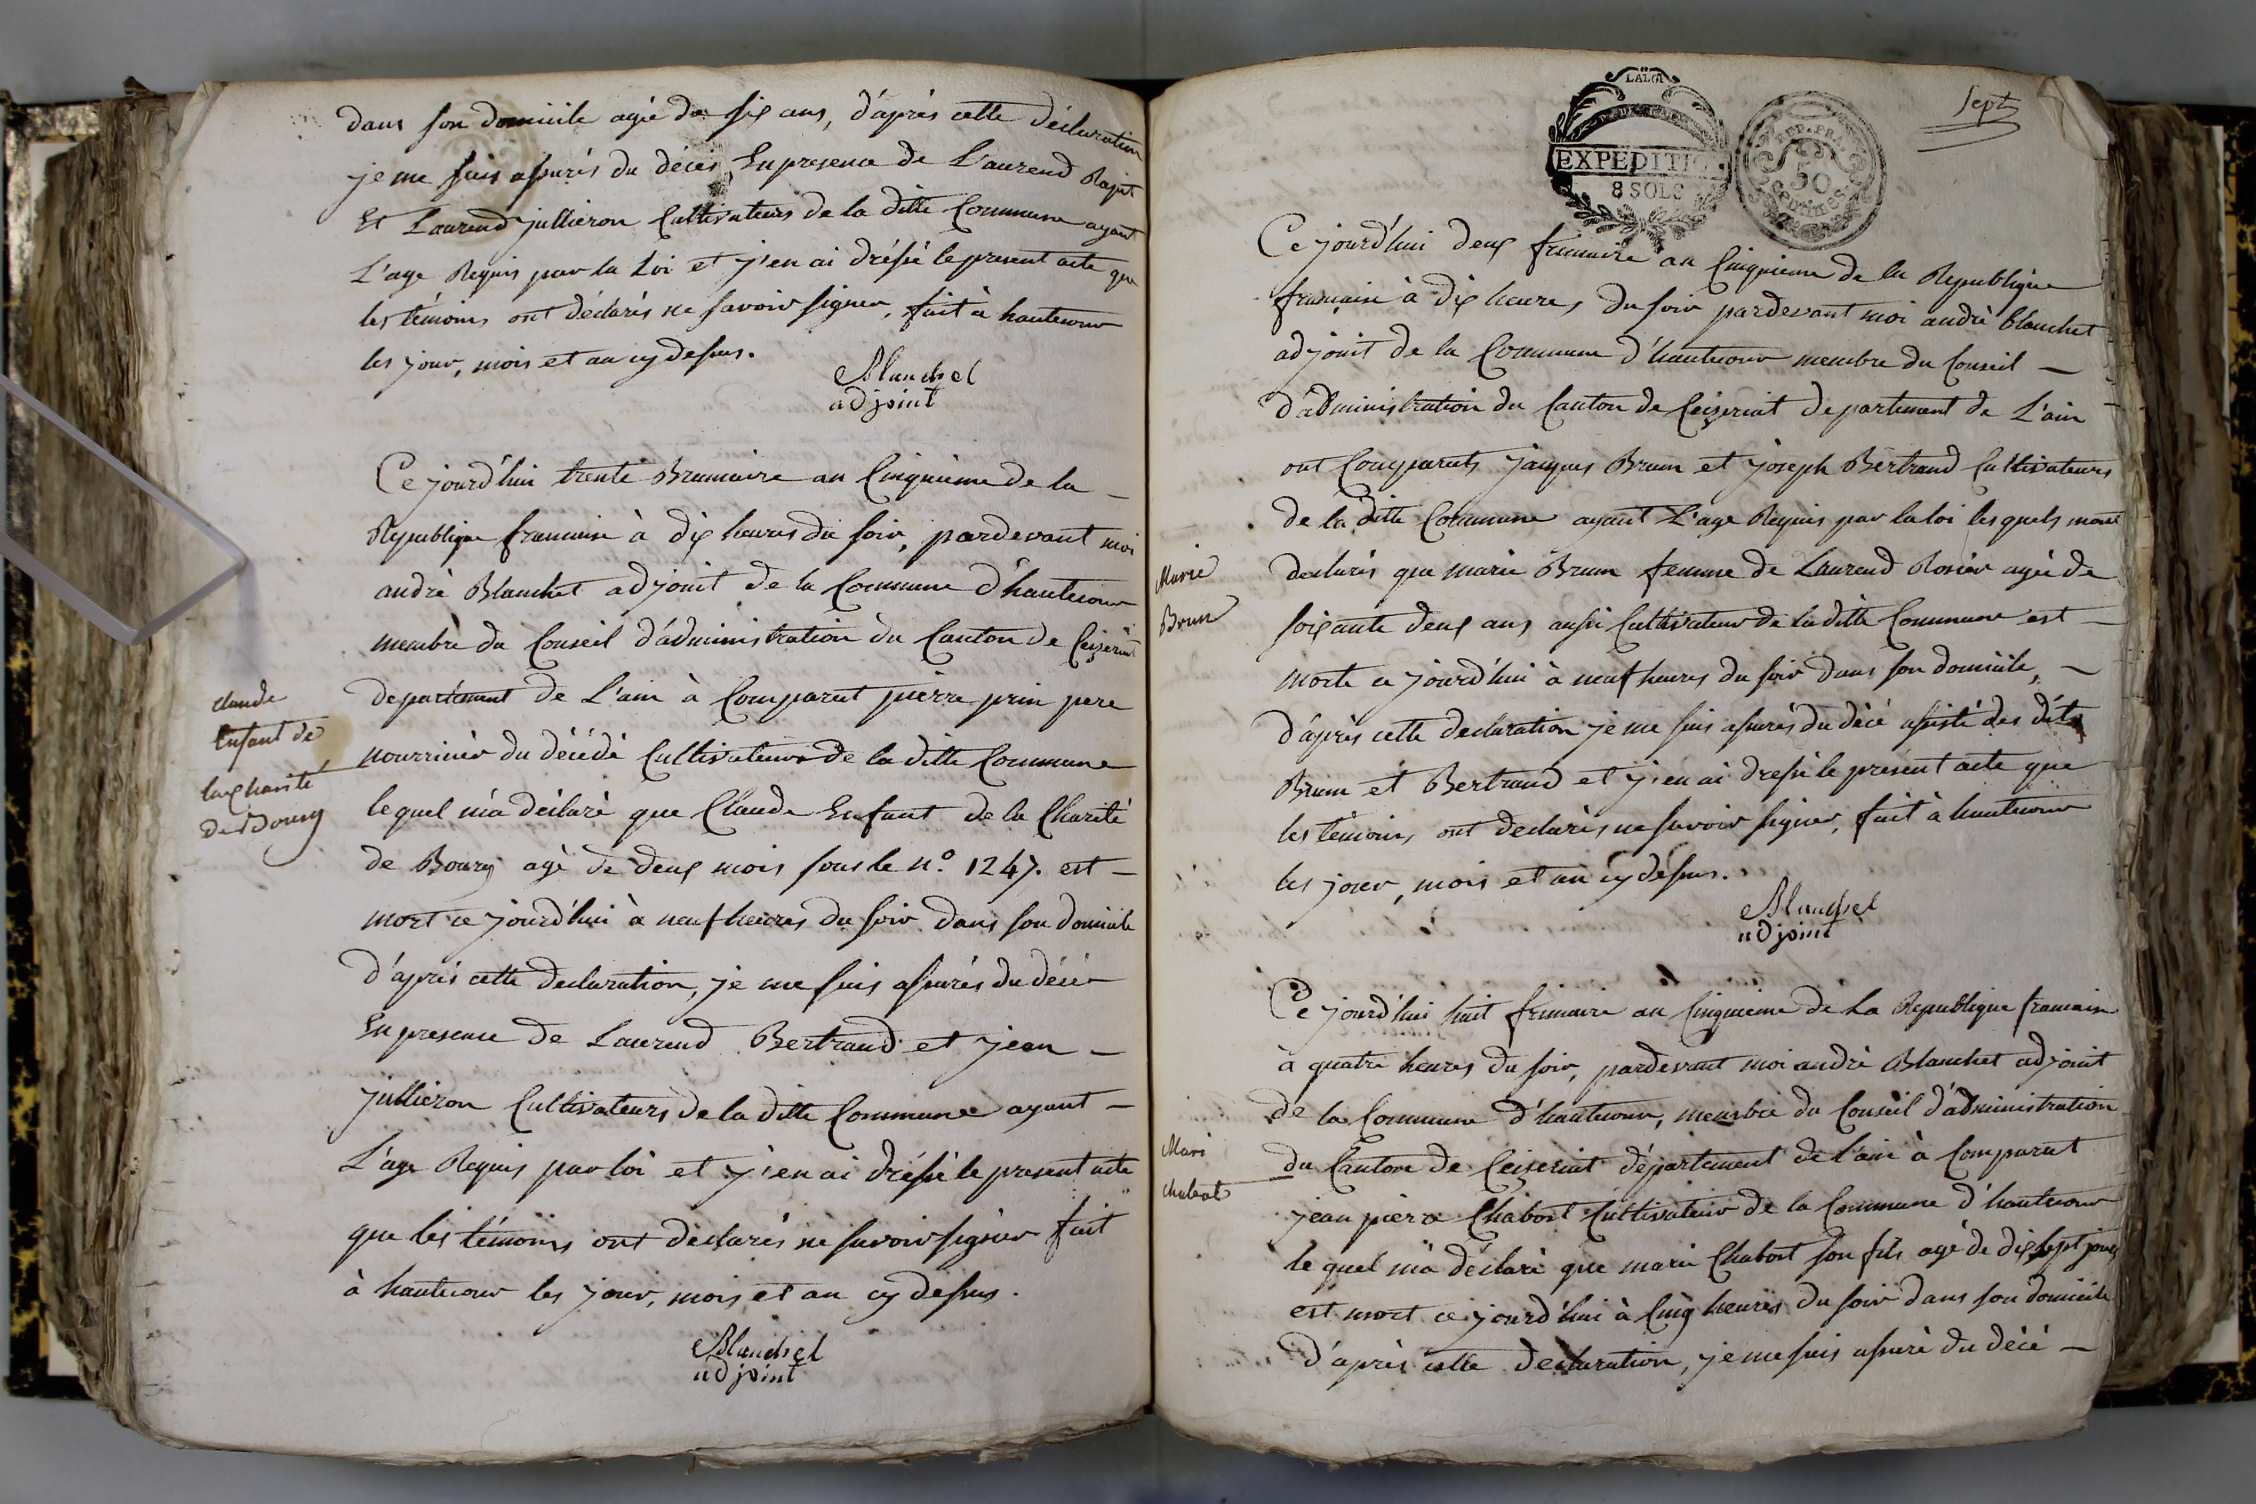 dans son domicile agé de six ans, d'aprés cette déclaration
je me suis assurés du décès En presence de Laurend Rapit
Et Laurend jullieron Cultivateurs de la ditte Commune ayant
L'age Requis par la Loi et j'en ai dréssé le present acte que
les témoins ont déclarés ne savoir signer, fait à hautecour
les jour, mois et an cy dessus.
Blanchet
adjoint
Ce jourd'hui trente Brumaire an Cinquieme de la
Republique francaise à dix heures du soir, pardevant moi
andrè Blanchet adjoint de la Commune d'hautecour
membre du Conseil d'administration du Canton de Ceizeriat
departement de L'ain à Comparut pierre prin pere
nourricier du décédé Cultivateur de la ditte Commune
claude
Enfant de
la Charité
de Bourg
lequel m'a déclaré que Claude Enfant de la Charité
de Bourg agé de deux mois sous le n.º 1247. est
mort ce jourd'hui à neuf heures du soir dans son domicile
d'aprés cette declaration, je me suis assurés du décés
En presence de Laurend Bertrand et jean
jullieron Cultivateurs de la ditte Commune ayant
L'age Requis par loi et j'en ai dréssé le present acte
que les témoins ont declarés ne savoir signer fait
à hautecour les jour, mois et an cy dessus.
Blanchet
adjoint
LA LOI
EXPEDITION
8 SOLS
REP. FRA.
50
Centimes
Sept
Ce jourd'hui deux frimaire an Cinquieme de la Republique
francaise à dix heures du soir pardevant moi andrè blanchet
adjoint de la Commune d'hautecour membre du Conseil
d'administration du Canton de Ceizeriat departement de L'ain
ont Comparuts jacques Brun et joseph Bertrand Cultivateurs
de la ditte Commune ayant L'age Requis par la loi les quels mont
Marie
Brun
declarés que marie Brun femme de Laurend Rosier agée de
soixante deux ans aussi Cultivateur de la ditte Commune est
morte ce jourd'hui à neuf heures du soir dans son domicile,
d'après cette declaration je me suis assurés du décé assisté des dits
Brun et Bertrand et j'en ai dressé le présent acte que
les témoins ont declarés ne savoir signer, fait à hautecour
les jour, mois et an cy déssus.
Blanchet
adjoint
Ce jourd'hui huit frimaire an Cinquieme de La Republique francaise
à quatre heures du soir, pardevant moi andrè Blanchet adjoint
de la Commune d'hautecour, membre du Conseil d'administration
Mari
chabot
du Canton de Ceizeriat département de l'ain à Comparut
jean pierre Chabost Cultivateur de la Commune d'hautecour
le quel m'a déclaré que marie Chabost son fils agé de dix sept jours
est mort ce jourd'hui à Cinq heures du soir dans son domicile
d'aprés cette declaration, je me suis assuré du décé